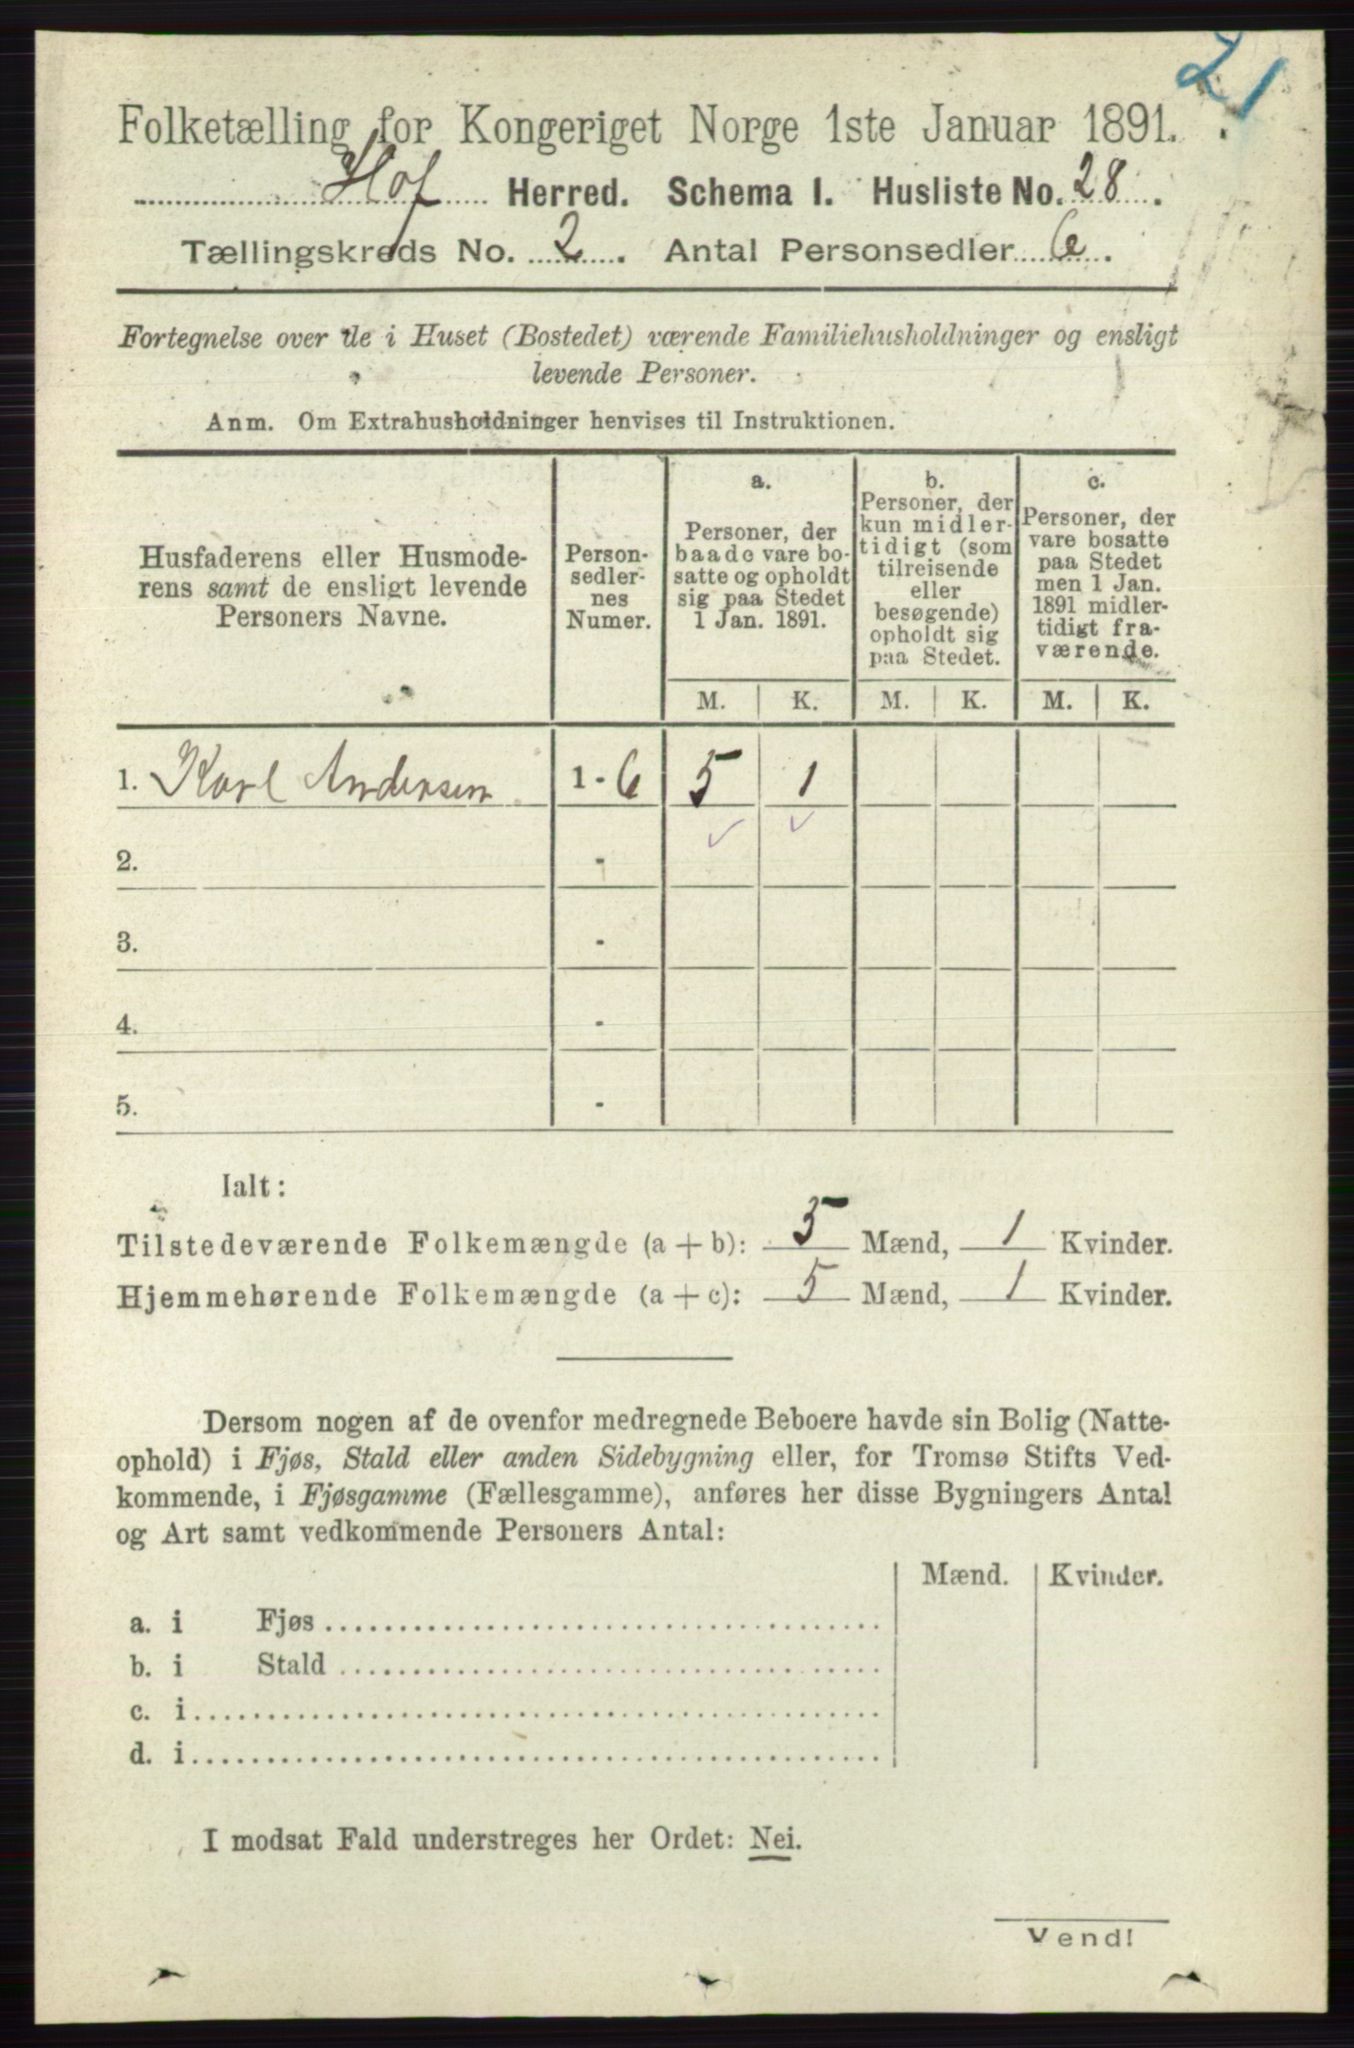 21
Folketælling for Kongeriget Norge 1ste Januar 1891.
Hof Herred. Schema I. Husliste No. 28.
Tællingskreds No. 2. Antal Personsedler 6.
Fortegnelse over de i Huset (Bostedet) værende Familiehusholdninger og ensligt
levende Personer.
Anm. Om Extrahusholdninger henvises til Instruktionen.
Husfaderens eller Husmode-
rens samt de ensligt levende
Personers Navne.
Person-
sedler-
nes
Numer.
a.
Personer, der
baade vare bo-
satte og opholdt
sig paa Stedet
1 Jan. 1891.
b.
Personer, der
kun midler-
tidigt (som
tilreisende
eller
besøgende)
opholdt sig
paa Stedet.
c.
Personer, der
vare bosatte
paa Stedet
men 1 Jan.
1891 midler-
tidigt fra-
værende.
M. K. M. K. M. K.
1. Karl Andersen 1 - 6 5 1
2. -
3. -
4. -
5. -
Ialt:
Tilstedeværende Folkemængde (a + b): 5 Mænd, 1 Kvinder.
Hjemmehørende Folkemængde (a + c): 5 Mænd, 1 Kvinder.
Dersom nogen af de ovenfor medregnede Beboere havde sin Bolig (Natte-
ophold) i Fjøs, Stald eller anden Sidebygning eller, for Tromsø Stifts Ved-
kommende, i Fjøsgamme (Fællesgamme), anføres her disse Bygningers Antal
og Art samt vedkommende Personers Antal:
Mænd. Kvinder.
a. i Fjøs
b. i Stald
c. i
d. i
I modsat Fald understreges her Ordet: Nei.
Vend!